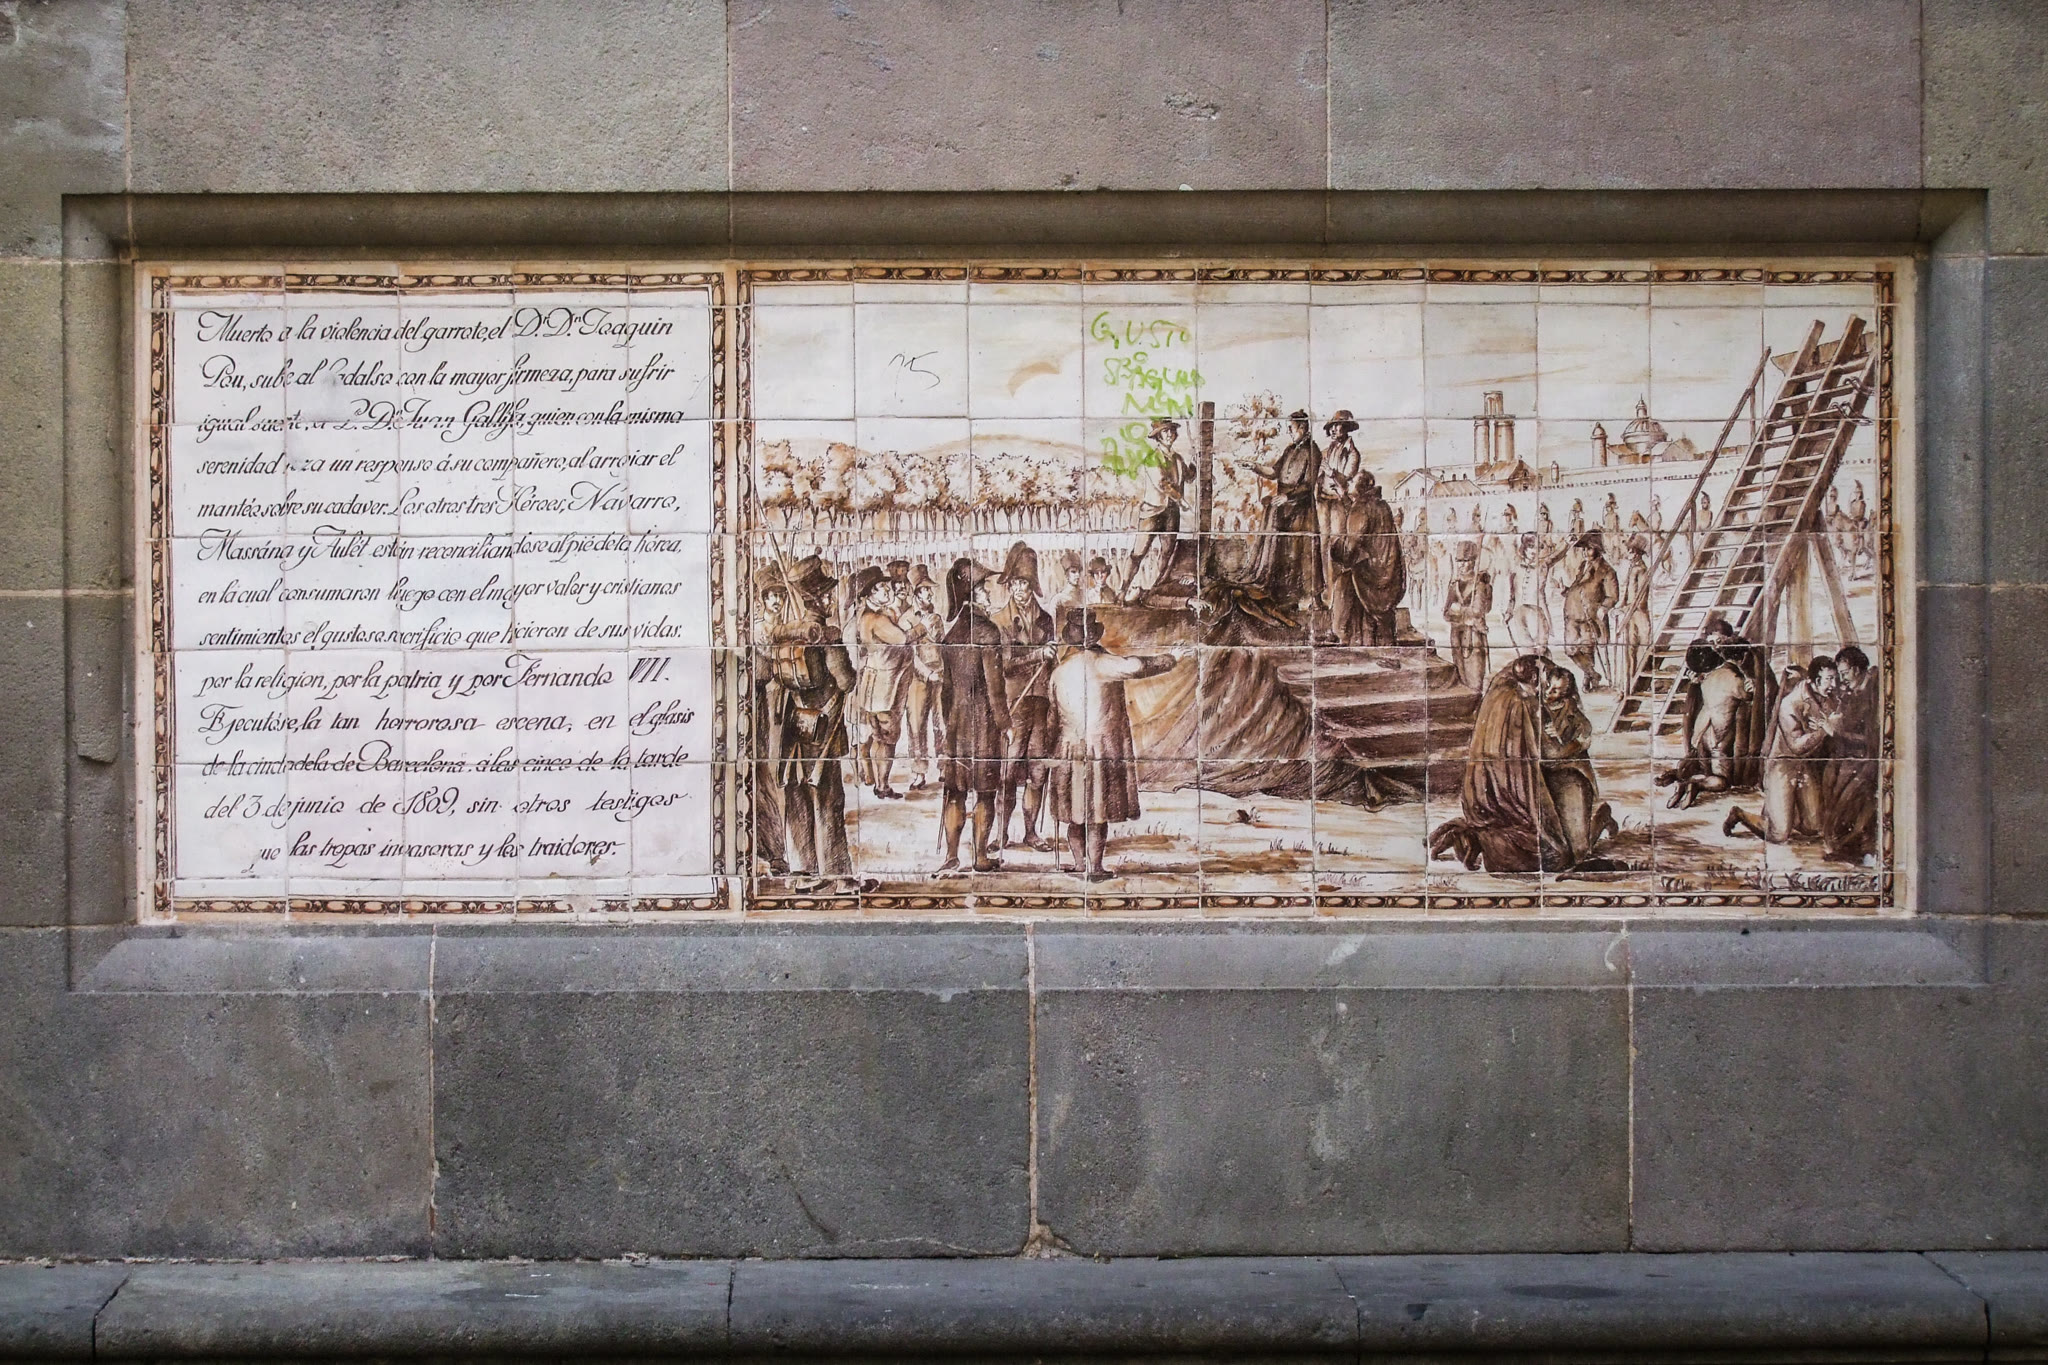 Muerto a la violencia del garrote, el D.r D.n Joaquin
Pou, sube al cadalso con la mayor firmeza, para sufrir
igual suerte, el P. D.n Juan Gallifa, quien con la misma
serenidad reza un responso á su compañero, al arrojar el
mantéo sobre su cadaver. Los otros tres Héroes, Navarro,
Massána y Aulét están reconciliandose al pié de la hórca,
en la cual consumaron luego con el mayor valor y cristianos
sentimientos el gustoso sacrificio que hicieron de sus vidas.
por la religion, por la patria y por Fernando VII.
Ejecutóse, la tan horrorosa escena, en el glasis
de la ciudadela de Barcelona, a las cinco de la tarde
del 3 de junio de 1809, sin otros testigos
que las tropas invasoras y los traidores.
GIUSTO